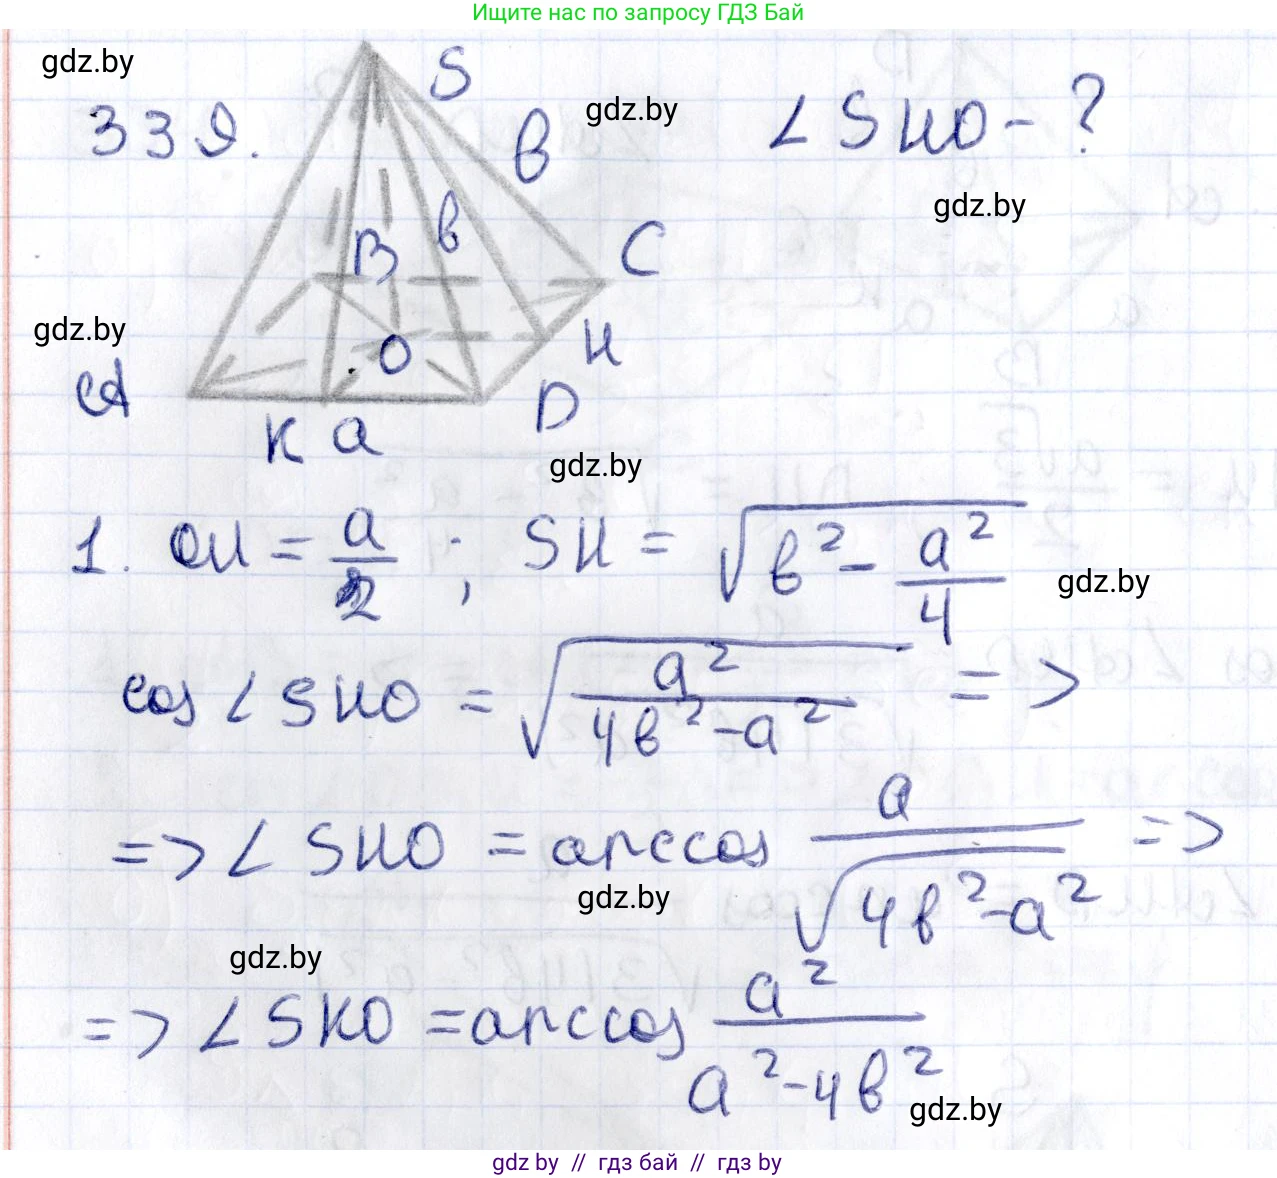 Ищите нас по запросу ГДЗ Бай
gdz.by
339.
S
B
gdz.by
∠SHO - ?
gdz.by
B
b
C
gdz.by
A
O
H
K a
D
gdz.by
1. OH = a/2 ; SH = √(b² - a²/4)
gdz.by
cos ∠SHO = √(a²/(4b² - a²)) =>
=> ∠SHO = arccos a/√(4b² - a²) =>
gdz.by
gdz.by
=> ∠SKO = arccos a²/(a² - 4b²)
gdz.by
gdz by // гдз бай // гдз by